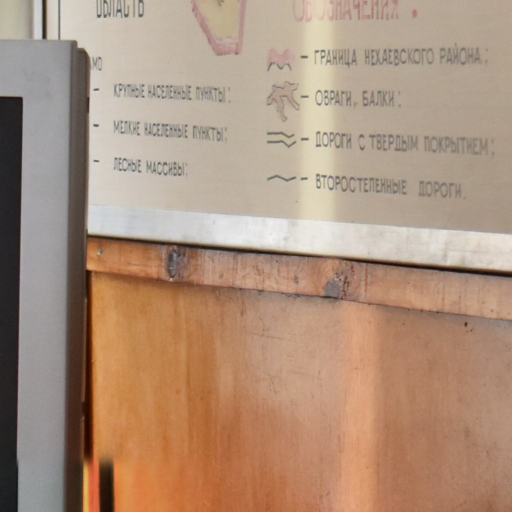 ОБЛАСТЬ
ОБОЗНАЧЕНИЯ.
МО
– КРУПНЫЕ НАСЕЛЕННЫЕ ПУНКТЫ;
– МЕЛКИЕ НАСЕЛЕННЫЕ ПУНКТЫ;
– ЛЕСНЫЕ МАССИВЫ;
– ГРАНИЦА НЕХАЕВСКОГО РАЙОНА;
– ОВРАГИ, БАЛКИ;
– ДОРОГИ С ТВЕРДЫМ ПОКРЫТИЕМ;
– ВТОРОСТЕПЕННЫЕ ДОРОГИ.